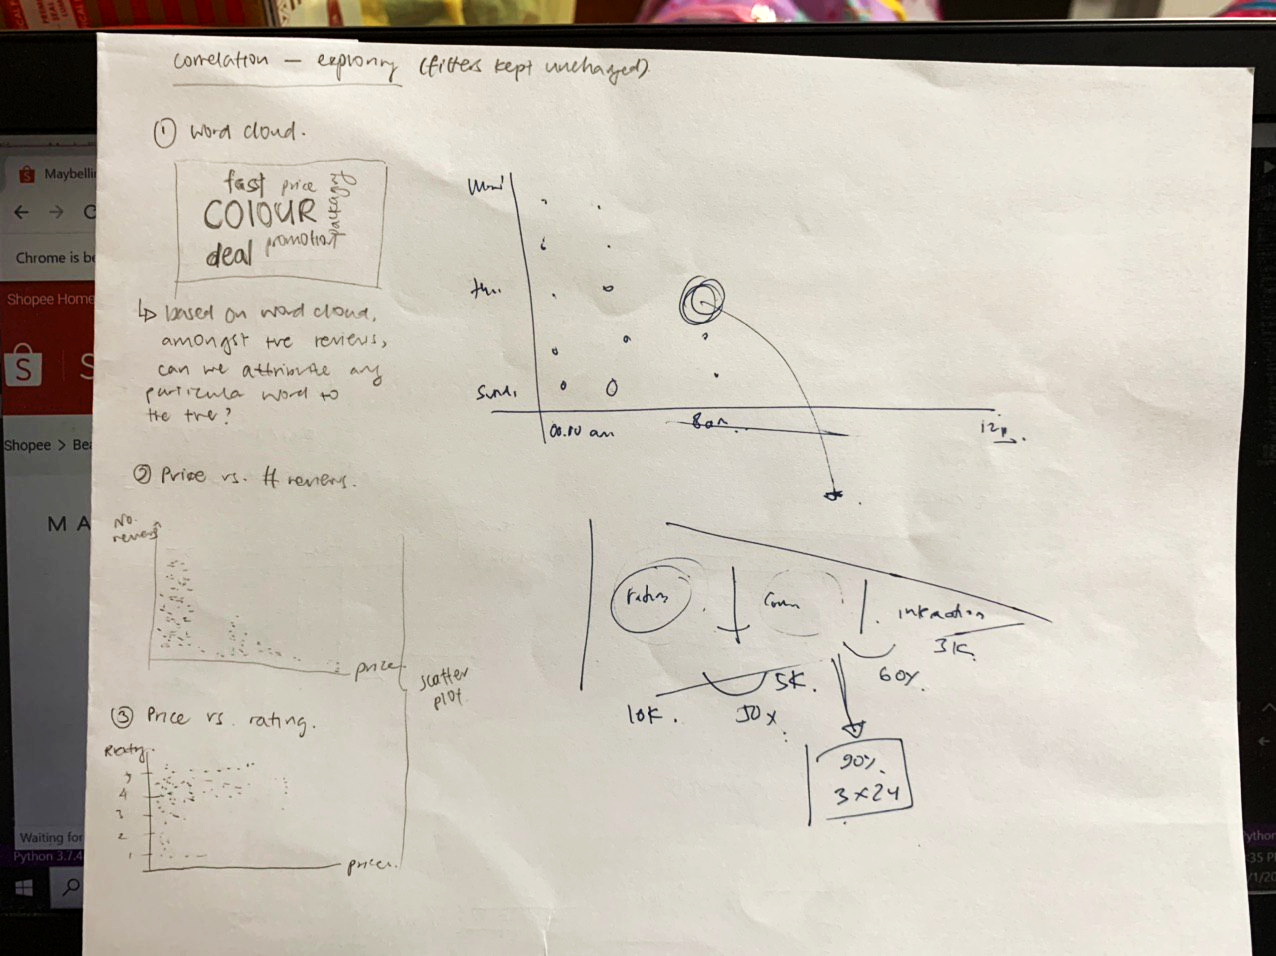 correlation — exploring (filters kept unchanged)
① word cloud.
fast price
packaging
COLOUR
deal promotion
↳ based on word cloud,
amongst the reviews,
can we attribute any
particula word to
the tre?
② Price vs. # reviews.
No.
reviews
price
scatter
plot.
③ Price vs. rating.
Rating.
5
4
3
2
1
price.
Mon
thu.
Sund.
00.00 am
8am
12p.
ratings
Comm
interaction
3K.
60%.
5K.
10K.
50%
90%.
3x24
Maybelli
Chrome is be
Shopee Home
S
Shopee > Bea
M A
Waiting for
Python 3.7.4
ython
:35 P
/1/20